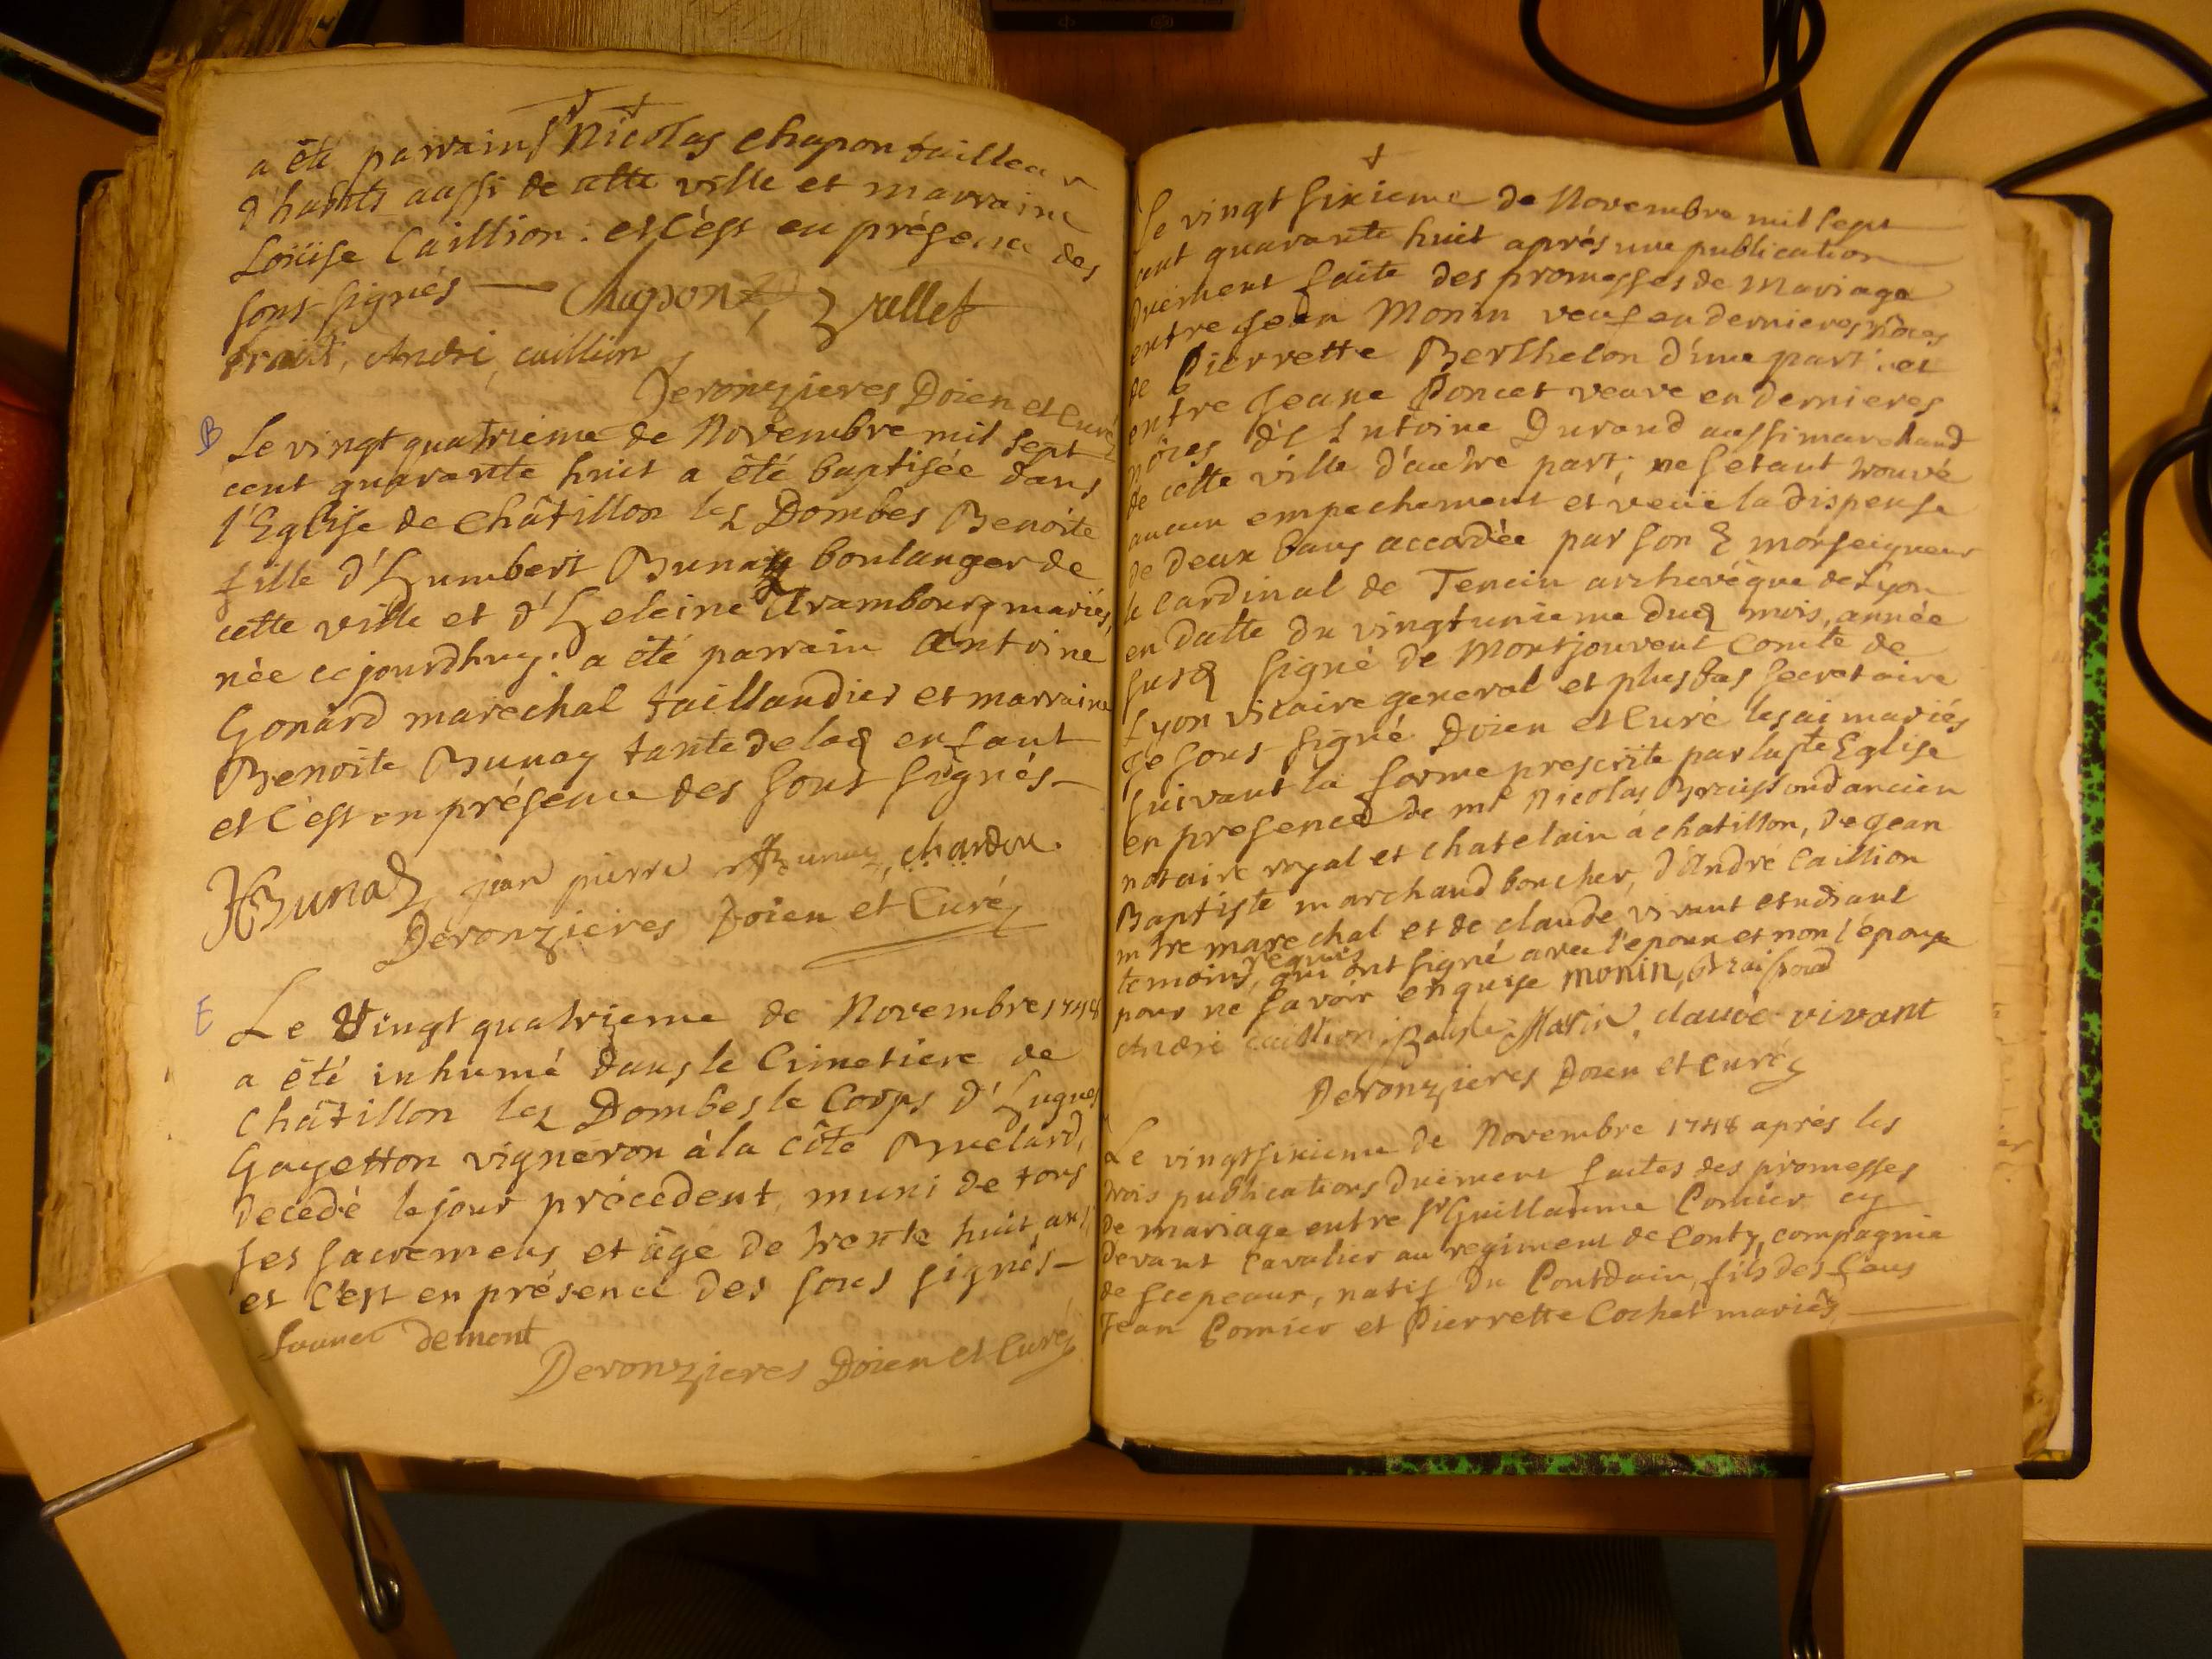 a êté parrain Sr Nicolas Chapon tailleur
d'habits aussi de cette ville et marraine
Loüise Caillion. et c'est en présence des
sous signés — Chapon,
André, caillion
Deronzieres Doien et Curé
B
Le vingt quatrieme de Novembre mil sept
cent quarante huit a êté baptisée dans
l'Eglise de Châtillon lez Dombes Benoite
fille d'humbert Bunay boulanger de
cette ville et d'heleine Arambourg mariés,
née ce jourdhuy. a êté parrain Antoine
Gonard marêchal taillandier et marraine
Benoite Bunay tante de lad enfant
et c'est en présence des sous signés —
HBunad jean pierre Bunay, chardon.
Deronzieres Doien et Curé
E
Le Vingt quatrieme de Novembre 1748
a êté inhumé dans le Cimetiere de
châtillon lez Dombes le Corps d'hugues
Gayetton vigneron à la côte Bruelard,
decedé le jour précedent, muni de tous
ses sacremens, et âgé de trente huit ans
et c'est en présence des sous signés —
demont
Deronzieres Doien et Curé
Le vingt sixieme de Novembre mil sept
cent quarante huit aprés une publication
duëment faite des promesses de Mariage
entre Jean Monin veuf en dernieres nôces
de Pierrette Berthelon d'une part: et
entre Jeane Poncet veuve en dernieres
nôces d'Antoine Durand aussi marchand
de cette ville d'autre part; ne s'etant trouvé
aucun empechement et veüe la dispense
de deux bans accordée par son E monseigneur
le Cardinal de Tencin archevêque de Lyon
en datte du vingtunieme dud mois, année
susd signé de Montjouvent Comte de
Lyon vicaire general et plus bas secretaire
Je sous signé Doien et Curé les ai mariés
suivant la forme prescrite par la ste Eglise
en presence de mr Nicolas Braissoud ancien
notaire royal et chatelain à chatillon, de Jean
Baptiste marchand boucher, d'André Caillion
mtre marechal et de claude vivant etudiant
temoins requis, qui ont signé avec l'epoux et non l'épouse
pour ne savoir enquise monin, Braissoud
André caillion, Batiste Marin, claude vivant
Deronzieres Doien et curé
Le vingtsixieme de Novembre 1748 aprés les
trois publications duëment faites des promesses
de mariage entre Sr Guillaume Comier cy
devant cavalier au regiment de Conty, compagnie
de scepeaux, natif du Pontdain, fils des feus
Jean Comier et Pierrette Cochet mariés